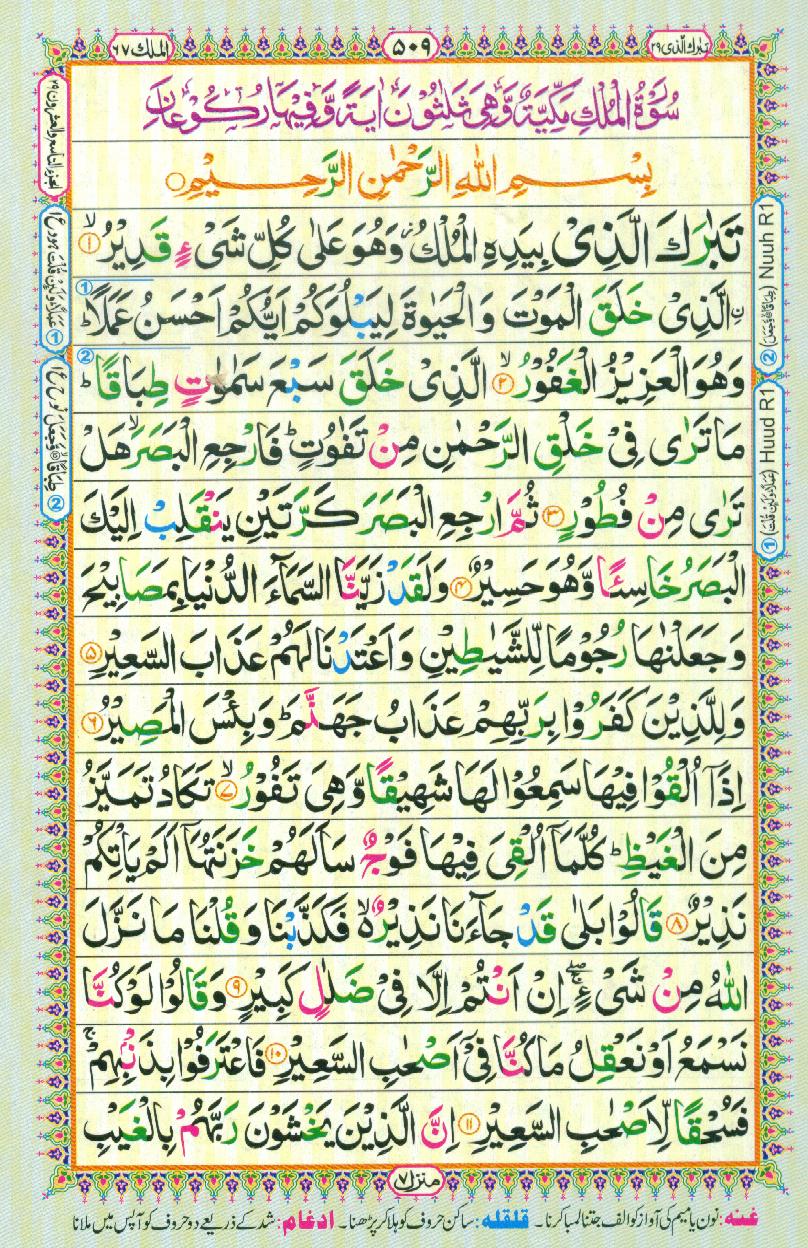 تبٰرك الذی ۲۹
۵۰۹
الملك ۶۷
سُوْرَةُ الْمُلْكِ مَكِّيَّةٌ وَّهِیَ ثَلٰثُوْنَ اٰيَةً وَّفِيْهَا رُكُوْعَانِ
بِسْمِ اللّٰهِ الرَّحْمٰنِ الرَّحِيْمِ
تَبٰرَكَ الَّذِیْ بِيَدِهِ الْمُلْكُ ؗ وَهُوَ عَلٰی كُلِّ شَیْءٍ قَدِيْرُ ۙ ۱
ۨالَّذِیْ خَلَقَ الْمَوْتَ وَالْحَيٰوةَ لِيَبْلُوَكُمْ اَيُّكُمْ اَحْسَنُ عَمَلًا ؕ
وَهُوَ الْعَزِيْزُ الْغَفُوْرُ ۙ ۲ الَّذِیْ خَلَقَ سَبْعَ سَمٰوٰتٍ طِبَاقًا ؕ
مَا تَرٰی فِیْ خَلْقِ الرَّحْمٰنِ مِنْ تَفٰوُتٍ ؕ فَارْجِعِ الْبَصَرَ ۙ هَلْ
تَرٰی مِنْ فُطُوْرٍ ۳ ثُمَّ ارْجِعِ الْبَصَرَ كَرَّتَيْنِ يَنْقَلِبْ اِلَيْكَ
الْبَصَرُ خَاسِئًا وَّهُوَ حَسِيْرٌ ۴ وَلَقَدْ زَيَّنَّا السَّمَآءَ الدُّنْيَا بِمَصَابِيْحَ
وَجَعَلْنٰهَا رُجُوْمًا لِّلشَّيٰطِيْنِ وَاَعْتَدْنَا لَهُمْ عَذَابَ السَّعِيْرِ ۵
وَلِلَّذِيْنَ كَفَرُوْا بِرَبِّهِمْ عَذَابُ جَهَنَّمَ ؕ وَبِئْسَ الْمَصِيْرُ ۶
اِذَآ اُلْقُوْا فِيْهَا سَمِعُوْا لَهَا شَهِيْقًا وَّهِیَ تَفُوْرُ ۙ ۷ تَكَادُ تَمَيَّزُ
مِنَ الْغَيْظِ ؕ كُلَّمَآ اُلْقِیَ فِيْهَا فَوْجٌ سَاَلَهُمْ خَزَنَتُهَآ اَلَمْ يَاْتِكُمْ
نَذِيْرٌ ۸ قَالُوْا بَلٰی قَدْ جَآءَنَا نَذِيْرٌ ۙ۬ فَكَذَّبْنَا وَقُلْنَا مَا نَزَّلَ
اللّٰهُ مِنْ شَیْءٍ ۚۖ اِنْ اَنْتُمْ اِلَّا فِیْ ضَلٰلٍ كَبِيْرٍ ۹ وَقَالُوْا لَوْ كُنَّا
نَسْمَعُ اَوْ نَعْقِلُ مَا كُنَّا فِیْٓ اَصْحٰبِ السَّعِيْرِ ۱۰ فَاعْتَرَفُوْا بِذَنْۢبِهِمْ ۚ
فَسُحْقًا لِّاَصْحٰبِ السَّعِيْرِ ۱۱ اِنَّ الَّذِيْنَ يَخْشَوْنَ رَبَّهُمْ بِالْغَيْبِ
② Nuuh R1
① Huud R1
منزل ۷
غنه: نون یا میم کی آواز کو الف جتنا لمبا کرنا۔ قلقله: ساکن حروف کو ہلا کر پڑھنا۔ ادغام: شد کے ذریعے دو حروف کو آپس میں ملانا